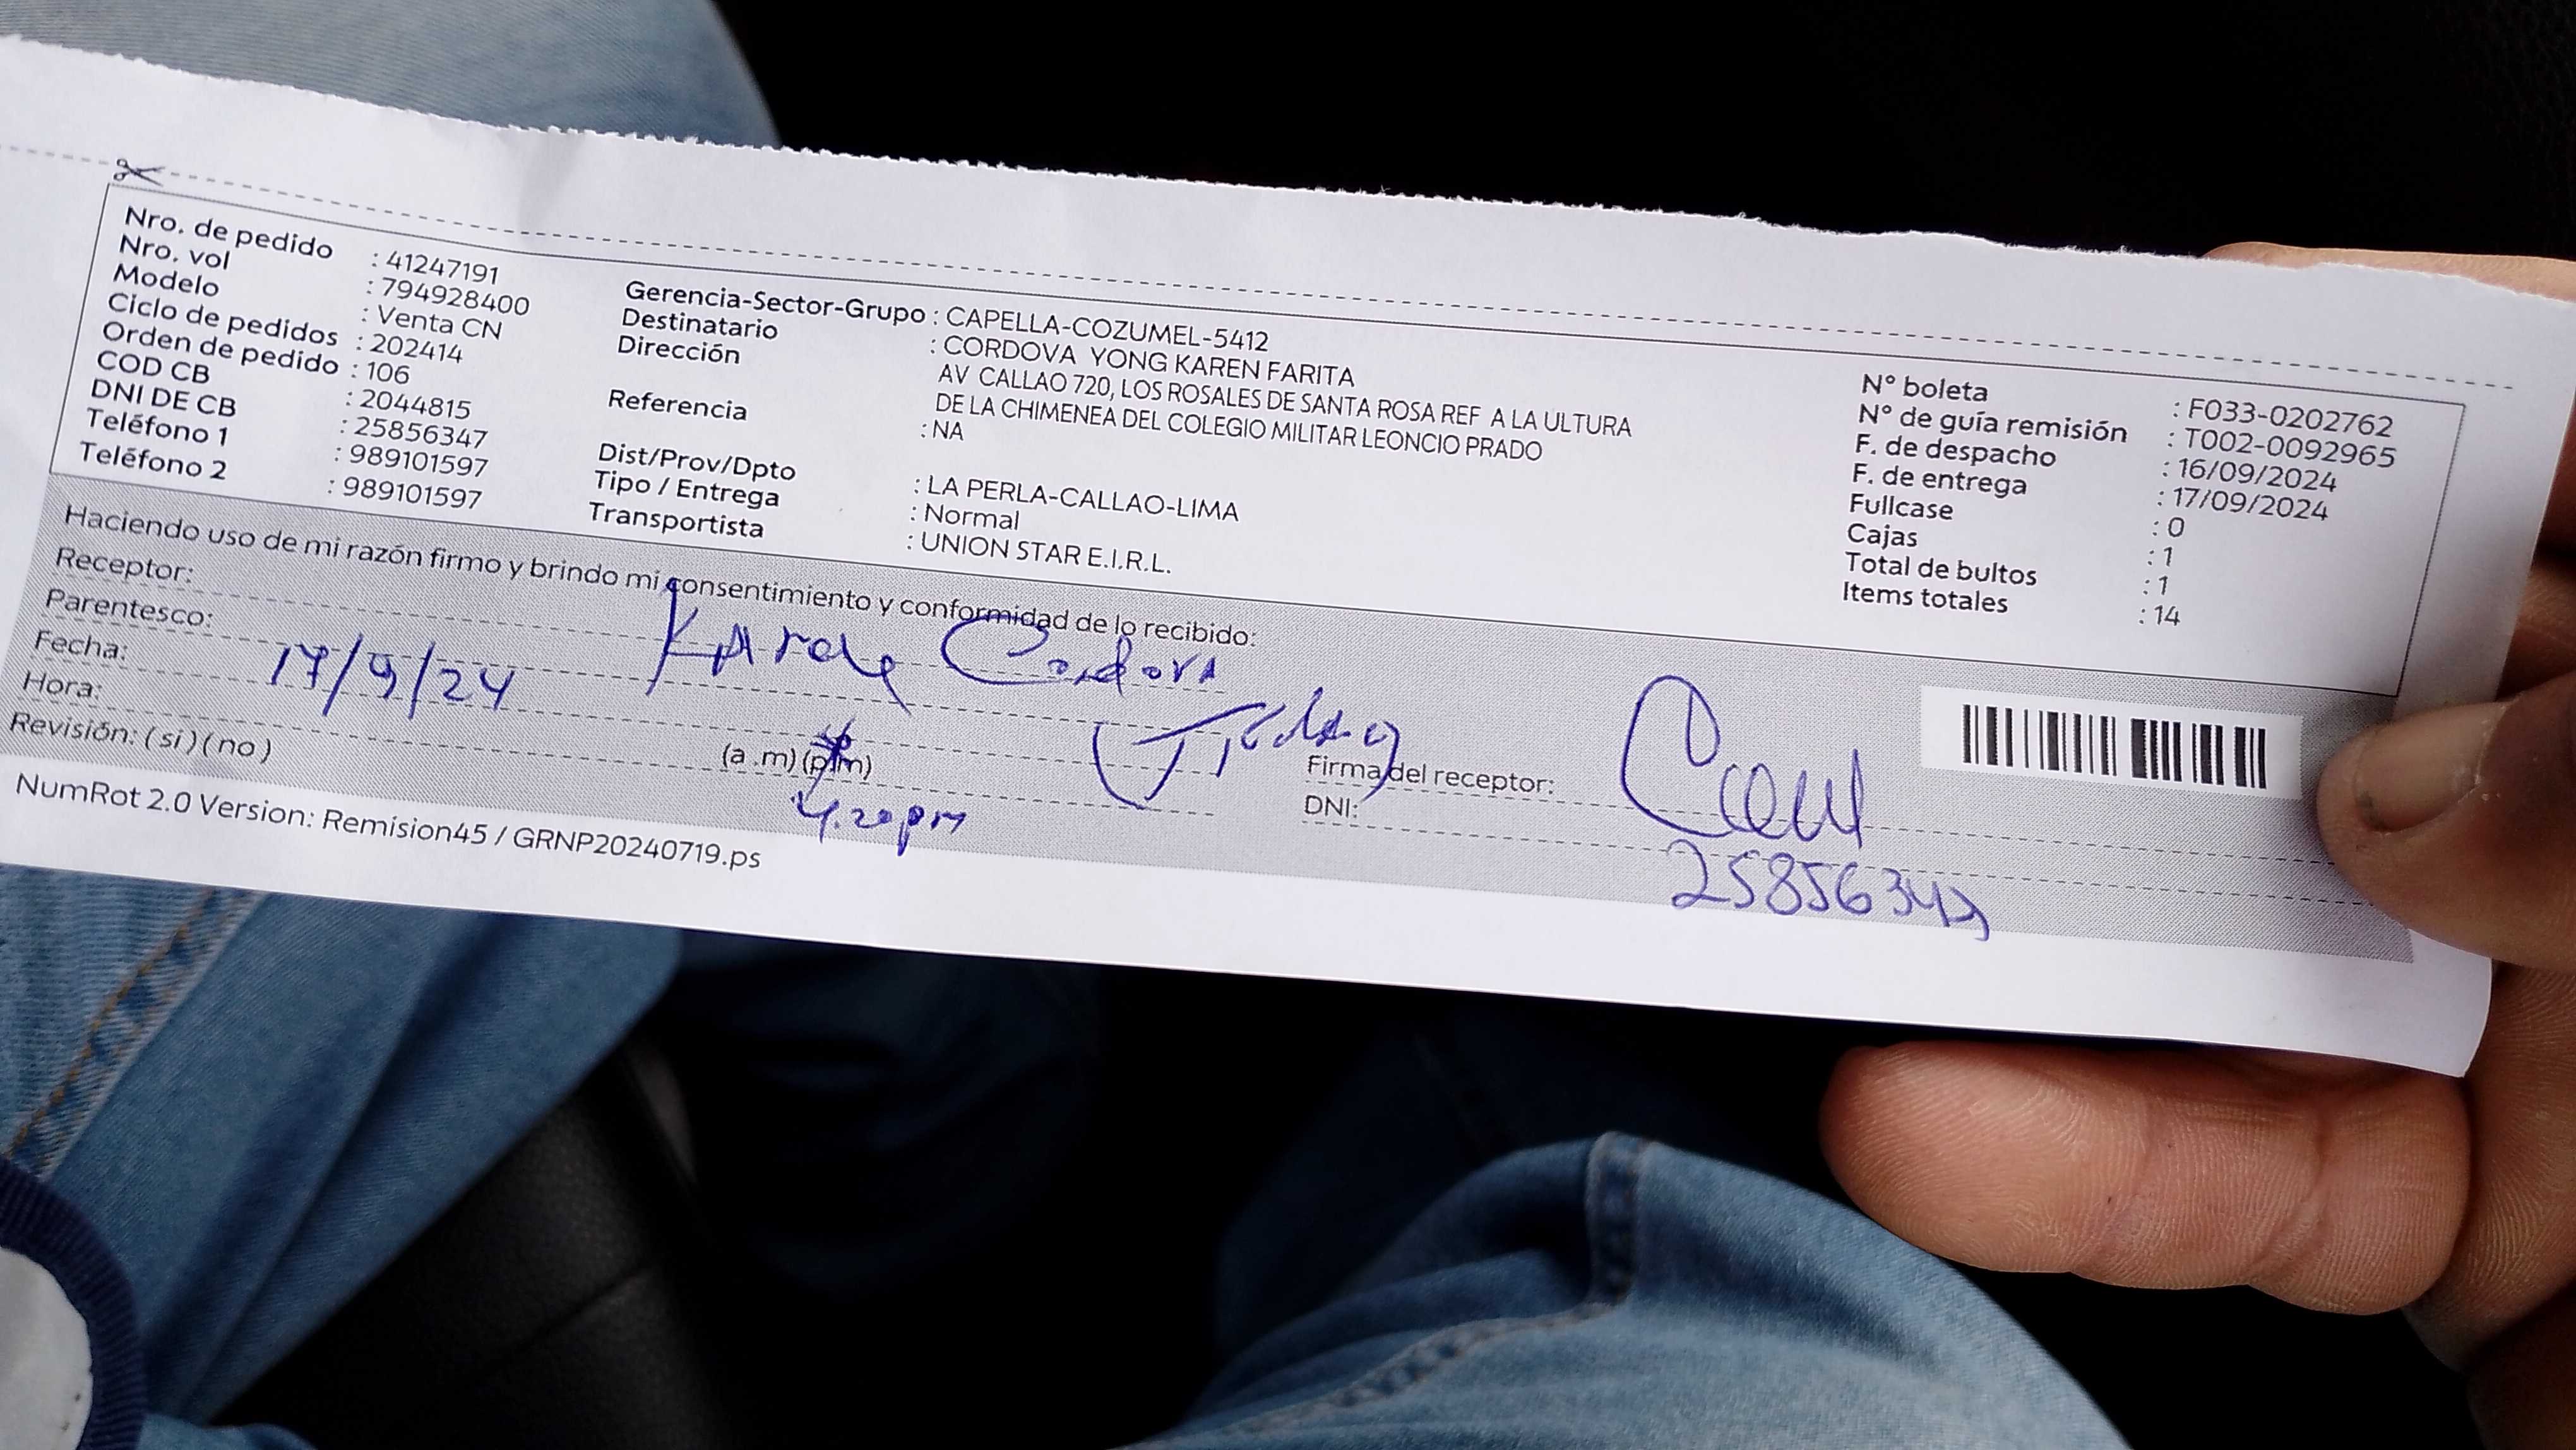 Nro. de pedido : 41247191
Nro. vol : 794928400
Modelo : Venta CN
Ciclo de pedidos : 202414
Orden de pedido : 106
COD CB : 2044815
DNI DE CB : 25856347
Teléfono 1 : 989101597
Teléfono 2 : 989101597
Gerencia-Sector-Grupo : CAPELLA-COZUMEL-5412
Destinatario : CORDOVA YONG KAREN FARITA
Dirección AV CALLAO 720, LOS ROSALES DE SANTA ROSA REF A LA ULTURA
DE LA CHIMENEA DEL COLEGIO MILITAR LEONCIO PRADO
Referencia : NA
Dist/Prov/Dpto : LA PERLA-CALLAO-LIMA
Tipo / Entrega : Normal
Transportista : UNION STAR E.I.R.L.
N° boleta : F033-0202762
N° de guía remisión : T002-0092965
F. de despacho : 16/09/2024
F. de entrega : 17/09/2024
Fullcase : 0
Cajas : 1
Total de bultos : 1
Items totales : 14
Haciendo uso de mi razón firmo y brindo mi consentimiento y conformidad de lo recibido:
Receptor: Cordova
Parentesco:
Fecha: 17/9/24
Hora: (a .m) (p.m)
4.20 pm
Revisión: (si) (no)
Firma del receptor:
DNI: 25856347
NumRot 2.0 Version: Remision45 / GRNP20240719.ps